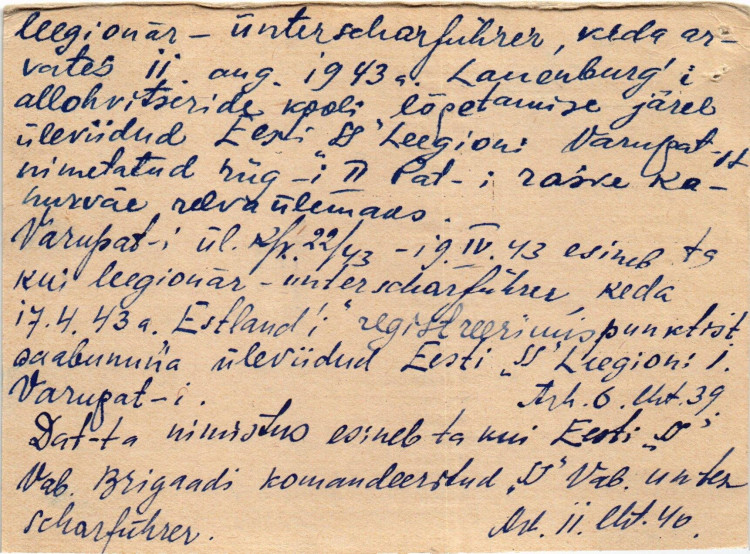 leegionär – unterscharführer, keda ar-
vates 11. aug. 1943 a. Lauenburg'i
allohvitseride kooli lõpetamise järel
üleviidud Eesti „SS" Leegioni Varupat-ist
nimetatud rüg-i II Pat-i raske ka-
hurväe relvaülemaks.
Varupat-i ül. k/k. 22/43 – 19.IV.43 esineb ta
kui leegionär – unterscharführer, keda
17.4.43 a. „Estland'i" registreerimispunktist
saabununa üleviidud Eesti „SS" Leegioni 1.
Varupat-i. Ark. 6. Lht. 39.
Dat-ta nimistus esineb ta kui Eesti „SS"
Vab. Brigaadi komandeeritud „SS" Vab. unter
scharführer. Ark. 11. Lht. 40.